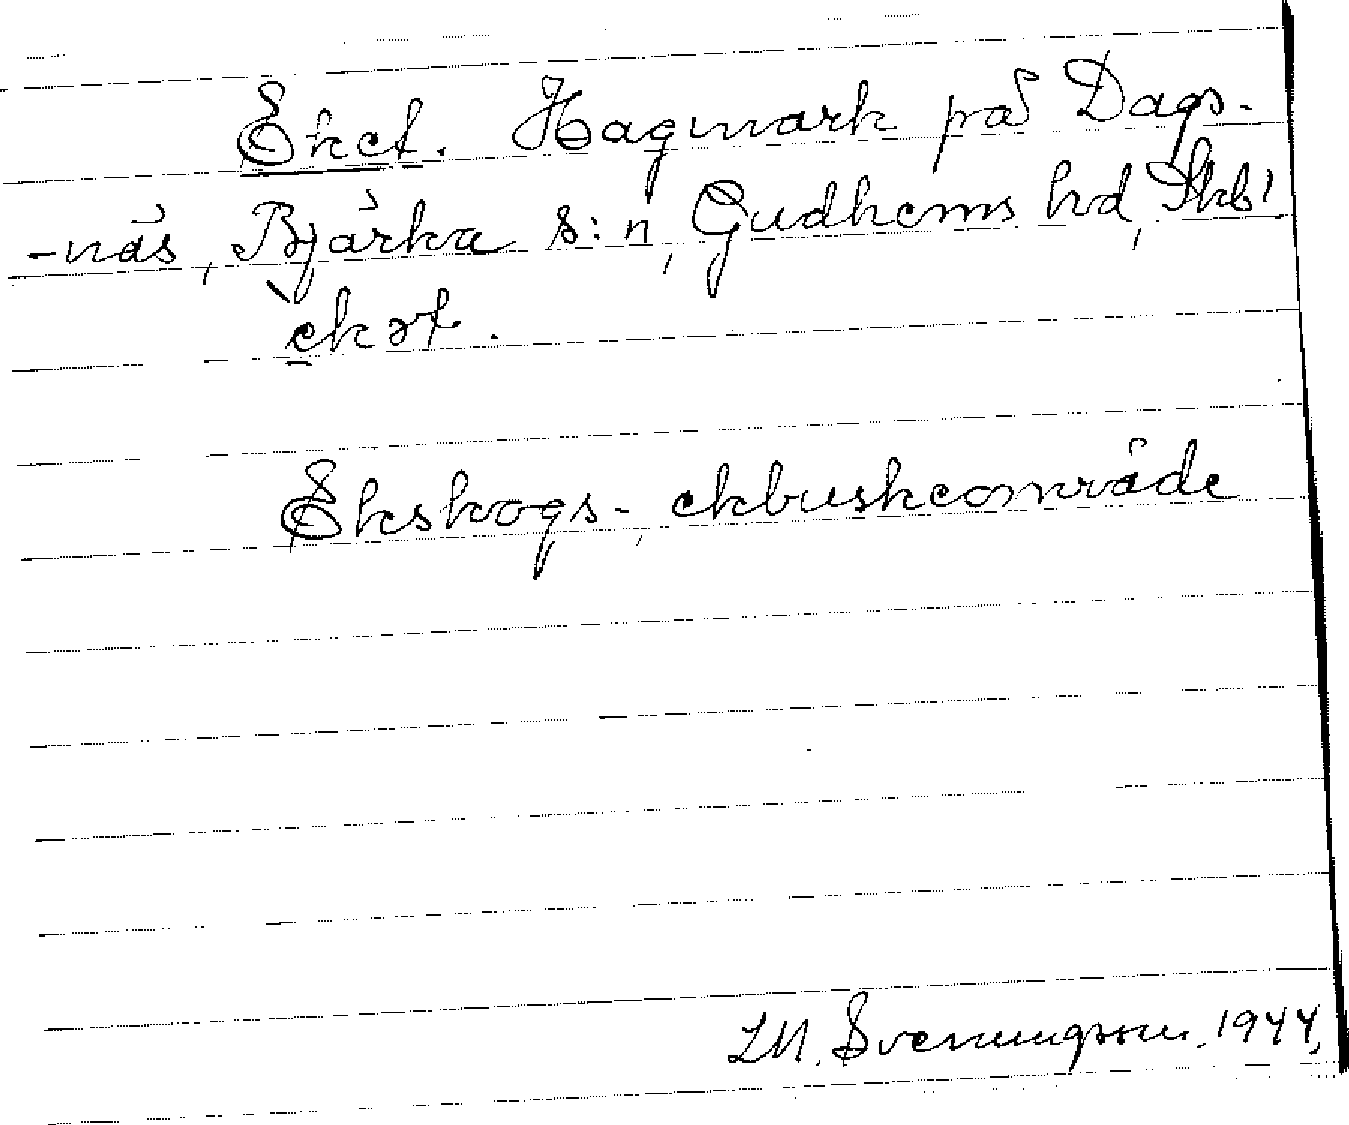 Eket. Hagmark på Dags-
-näs, Bjärka s:n, Gudhems hd, Skbl
ekət.
Ekskogs-, ekbuskområde
LM. Svenungsson. 1944.